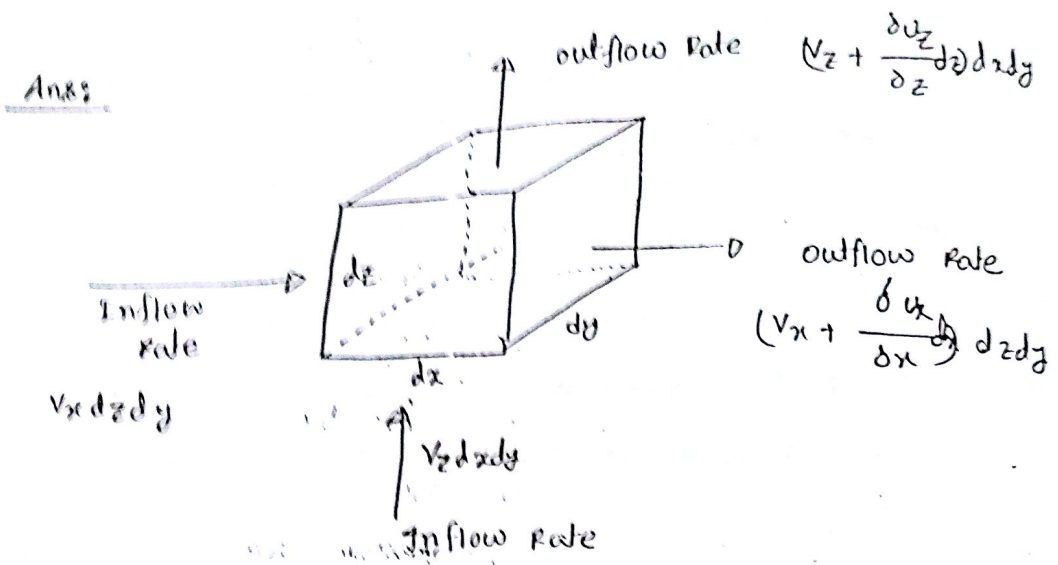 Ans:
outflow Rate (Vz + ∂vz/∂z dz) dxdy
dz
Inflow
Rate
Vx dzdy
dy
dx
outflow Rate
(Vx + ∂vx/∂x dx) dzdy
Vz dxdy
Inflow Rate